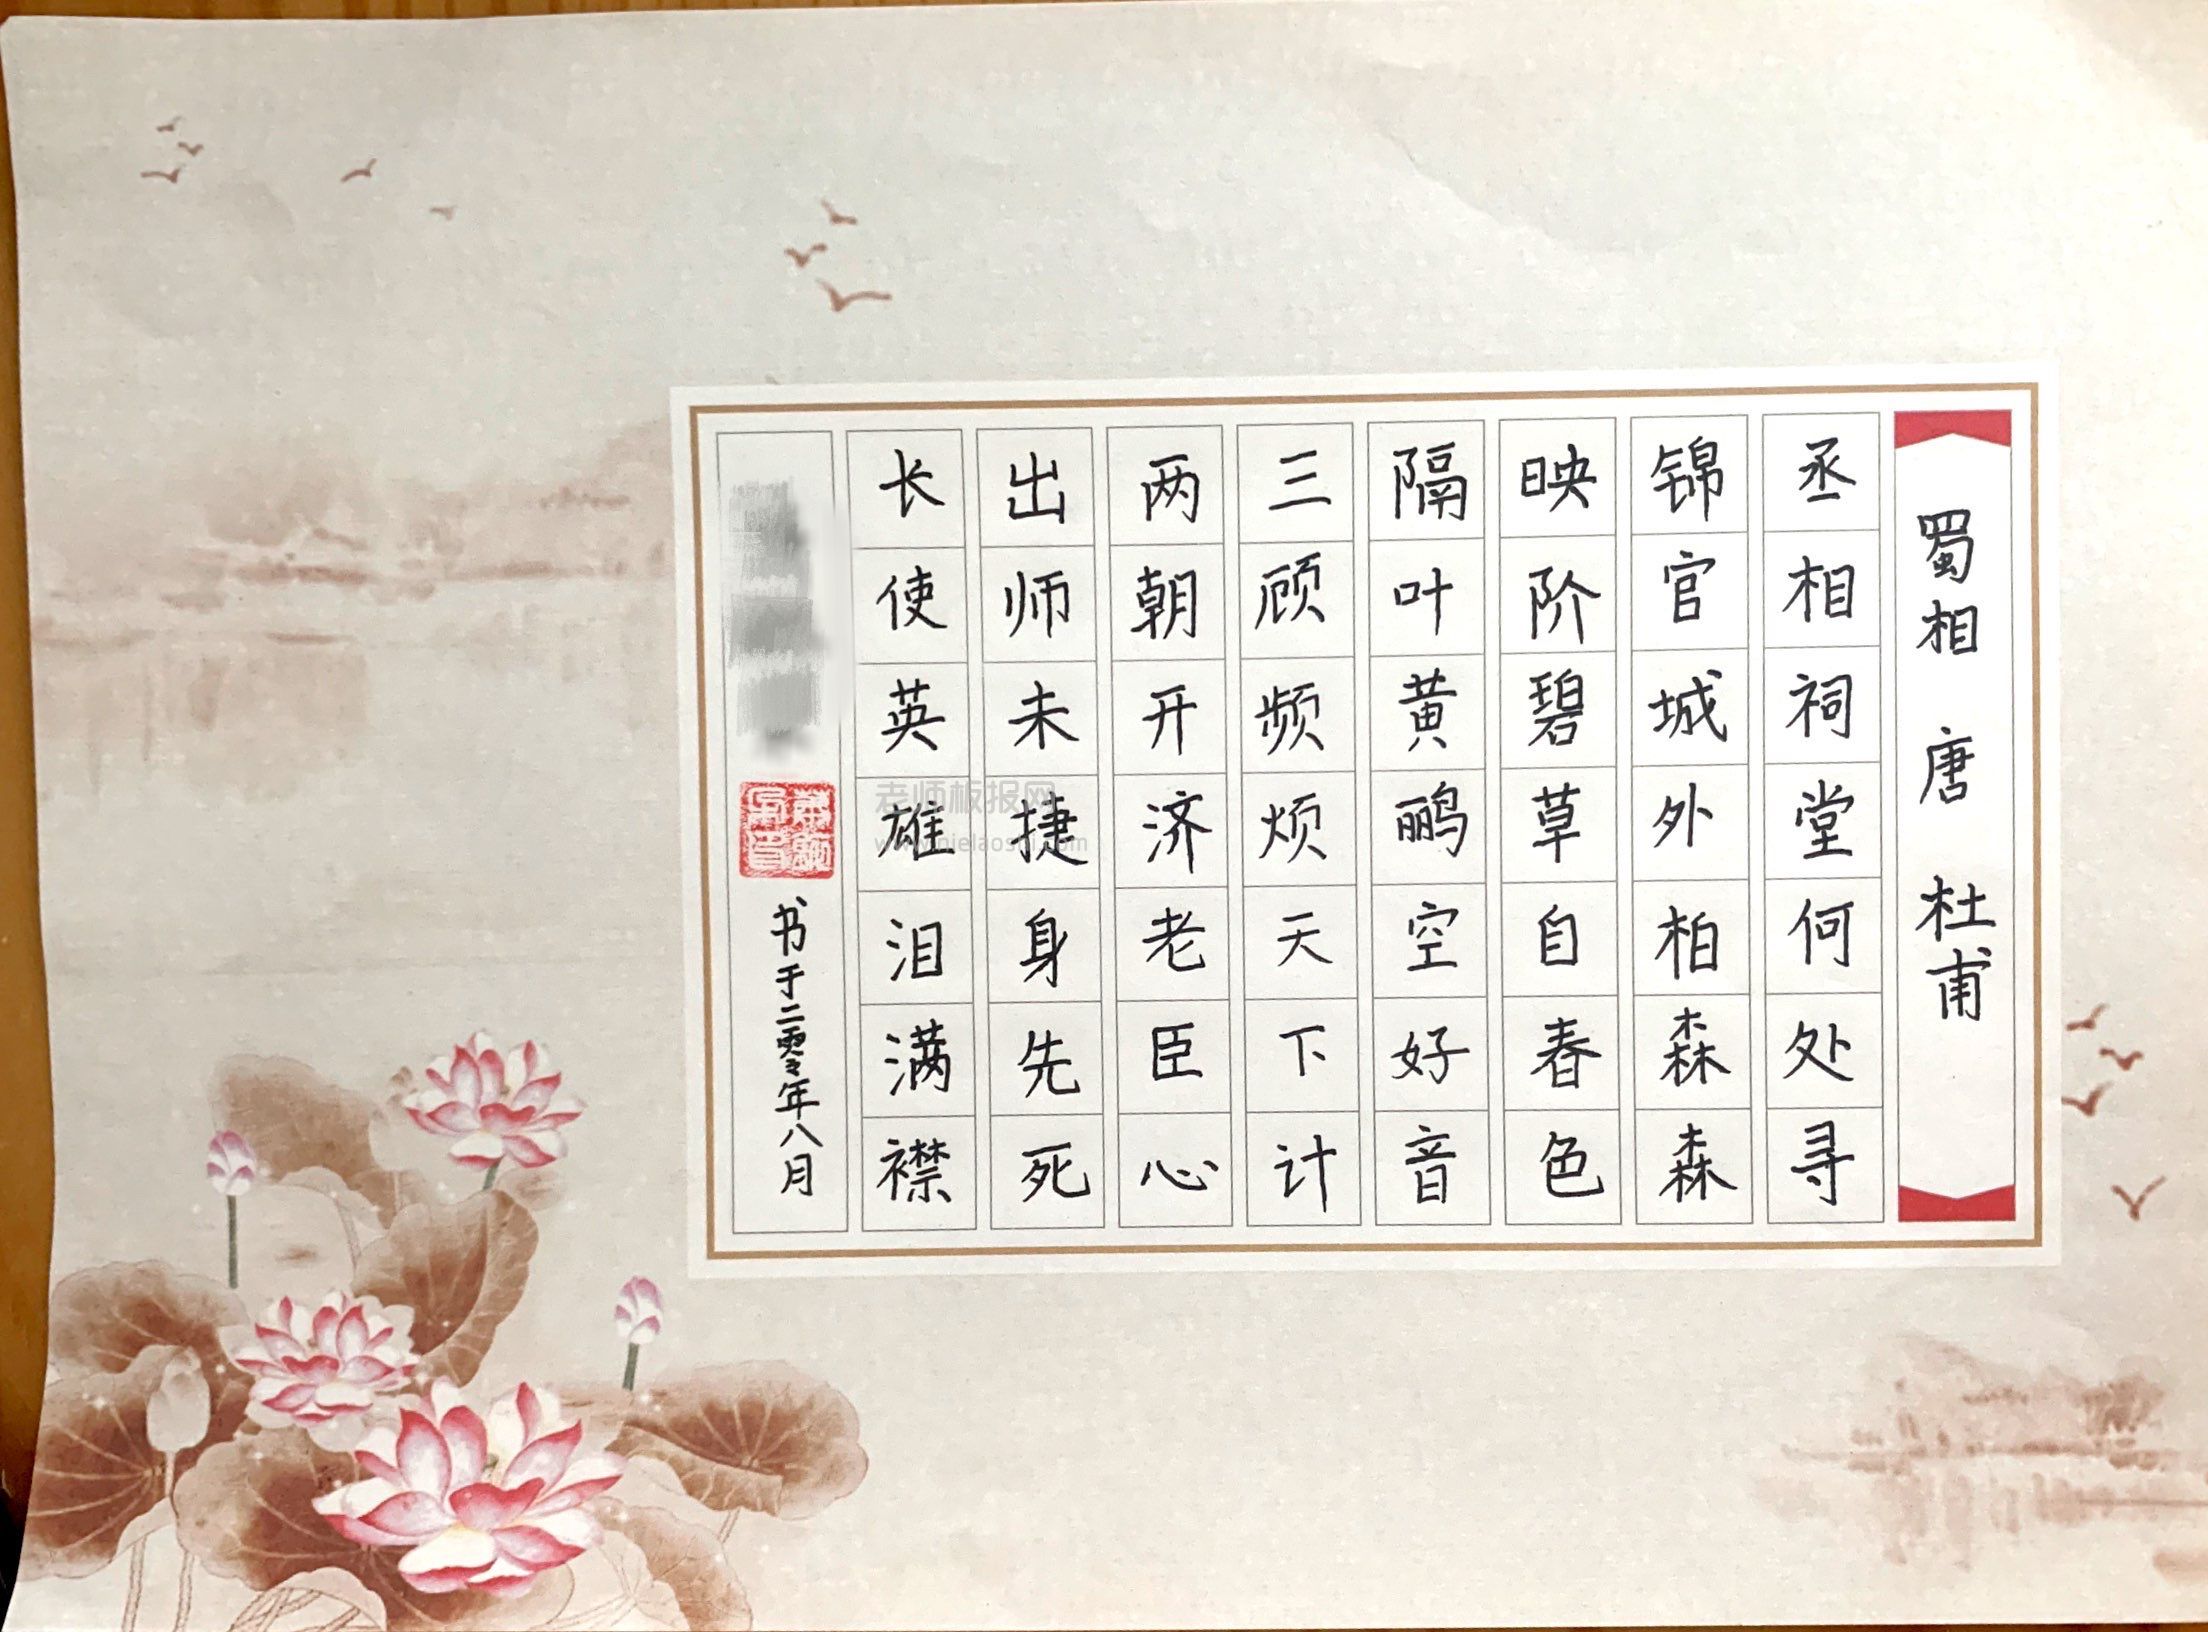 蜀相 唐 杜甫
丞相祠堂何处寻
锦官城外柏森森
映阶碧草自春色
隔叶黄鹂空好音
三顾频烦天下计
两朝开济老臣心
出师未捷身先死
长使英雄泪满襟
书于二零々年八月
老师板报网